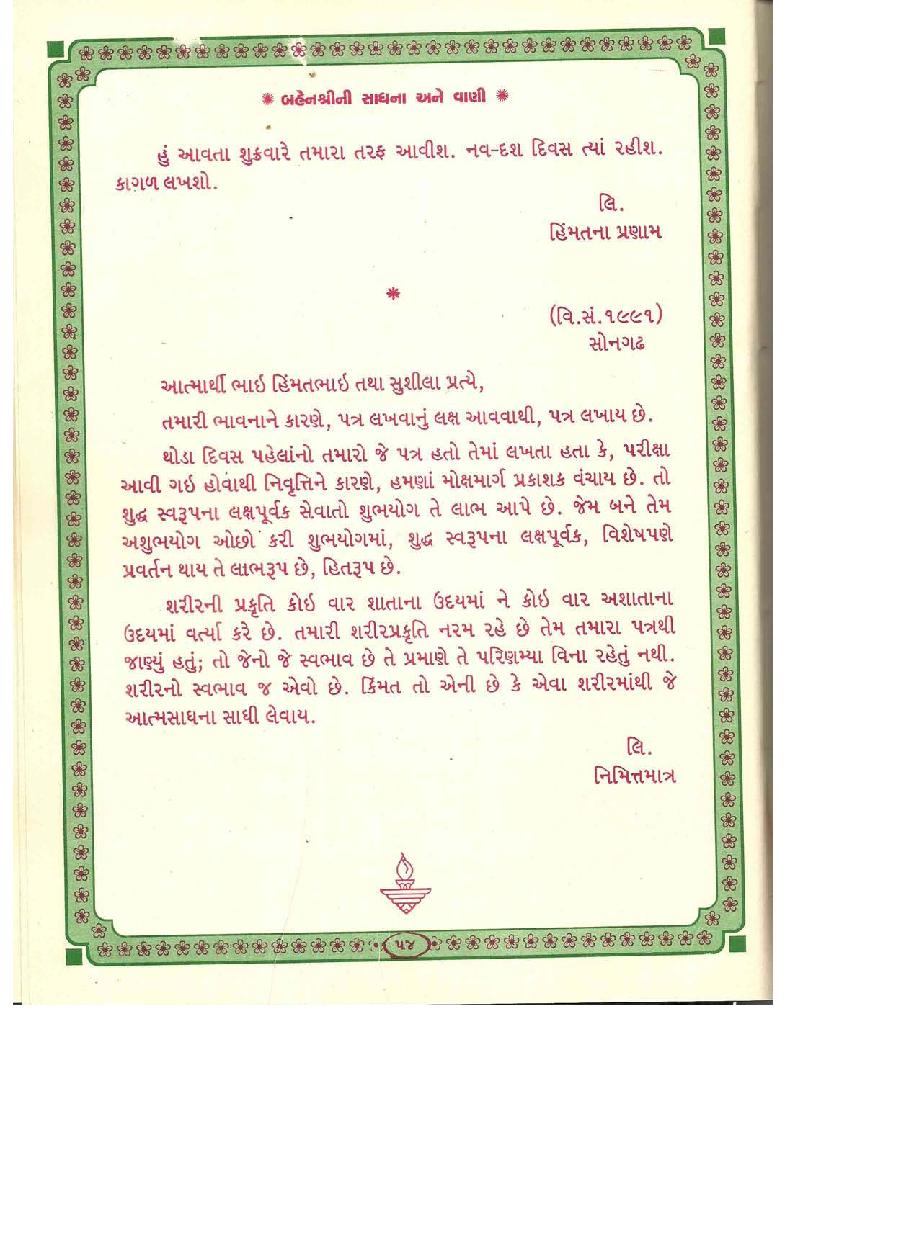 ❋ બહેનશ્રીની સાધના અને વાણી ❋
હું આવતા શુક્રવારે તમારા તરફ આવીશ. નવ-દશ દિવસ ત્યાં રહીશ.
કાગળ લખશો.
લિ.
હિંમતના પ્રણામ
❋
(વિ.સં.૧૯૯૧)
સોનગઢ
આત્માર્થી ભાઇ હિંમતભાઇ તથા સુશીલા પ્રત્યે,
તમારી ભાવનાને કારણે, પત્ર લખવાનું લક્ષ આવવાથી, પત્ર લખાય છે.
થોડા દિવસ પહેલાંનો તમારો જે પત્ર હતો તેમાં લખતા હતા કે, પરીક્ષા
આવી ગઇ હોવાથી નિવૃત્તિને કારણે, હમણાં મોક્ષમાર્ગ પ્રકાશક વંચાય છે. તો
શુદ્ધ સ્વરૂપના લક્ષપૂર્વક સેવાતો શુભયોગ તે લાભ આપે છે. જેમ બને તેમ
અશુભયોગ ઓછો કરી શુભયોગમાં, શુદ્ધ સ્વરૂપના લક્ષપૂર્વક, વિશેષપણે
પ્રવર્તન થાય તે લાભરૂપ છે, હિતરૂપ છે.
શરીરની પ્રકૃતિ કોઇ વાર શાતાના ઉદયમાં ને કોઇ વાર અશાતાના
ઉદયમાં વર્ત્યા કરે છે. તમારી શરીરપ્રકૃતિ નરમ રહે છે તેમ તમારા પત્રથી
જાણ્યું હતું; તો જેનો જે સ્વભાવ છે તે પ્રમાણે તે પરિણમ્યા વિના રહેતું નથી.
શરીરનો સ્વભાવ જ એવો છે. કિંમત તો એની છે કે એવા શરીરમાંથી જે
આત્મસાધના સાધી લેવાય.
લિ.
નિમિત્તમાત્ર
૫૪